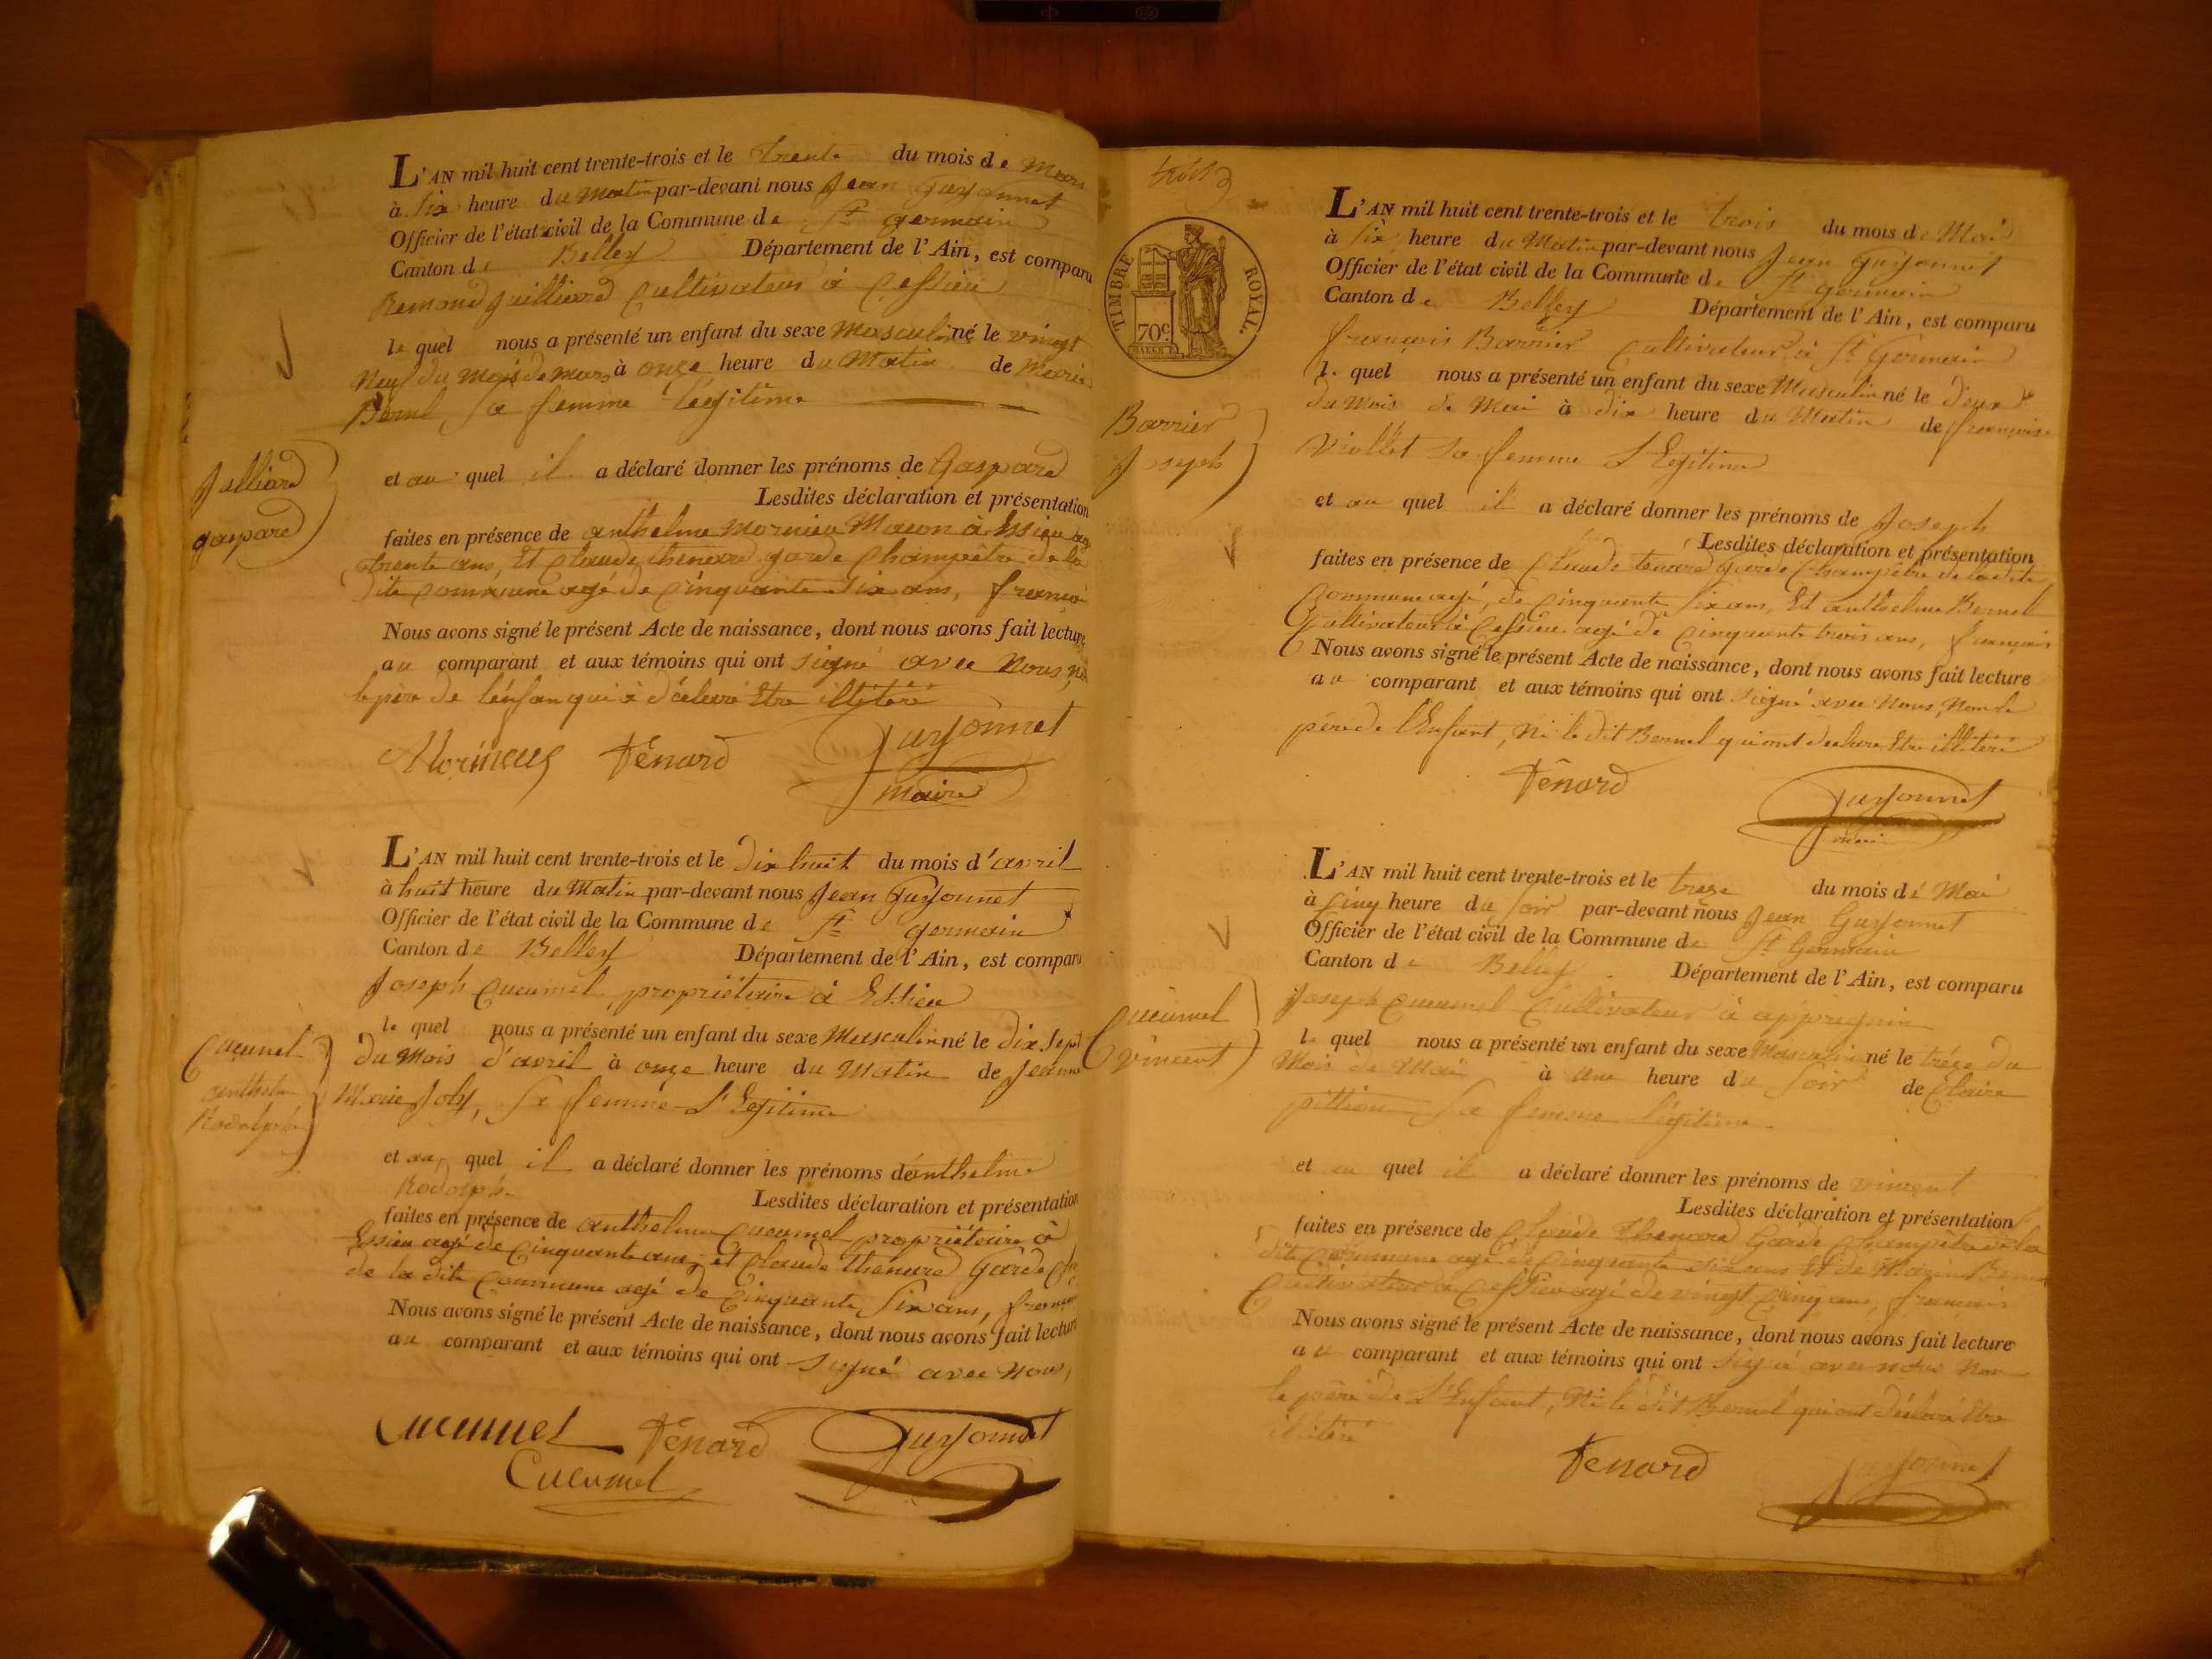 L'AN mil huit cent trente-trois et le trente du mois de Mars
à six heure du Matin par-devant nous Jean Guyonnet
Officier de l'état civil de la Commune de St germain
Canton de Belley Département de l'Ain, est comparu
Remond Juilliard Cultivateur à Cessieu
le quel nous a présenté un enfant du sexe Masculin né le vingt
Neuf du Mois de Mars à onze heure du Matin de Marie
Bernel sa femme légitime
Julliard
gaspard
et au quel il a déclaré donner les prénoms de Gaspard
Lesdites déclaration et présentation
faites en présence de anthelme Mornieu Macon à Essieu agé
trente ans, Et Claude thenard garde Champêtre de la
dite commune agé de Cinquante six ans, françai
Nous avons signé le présent Acte de naissance, dont nous avons fait lecture
au comparant et aux témoins qui ont signé avec Nous,
le père de l'enfan qui à déclaré Etre illitéré
Mornieux Tênard Guyonnet
maire
L'AN mil huit cent trente-trois et le dix huit du mois d'avril
à huit heure du Matin par-devant nous Jean Guyonnet
Officier de l'état civil de la Commune de St germain
Canton de Belley Département de l'Ain, est comparu
Joseph Cucumel propriétaire à Essieu
le quel nous a présenté un enfant du sexe Masculin né le dix Sept
du Mois d'avril à onze heure du Matin de Jeanne
Marie Joly, sa femme L'Egitime
Cucumel
anthelm
Rodolphe
et au quel il a déclaré donner les prénoms d'énthelme
Rodolph.
Lesdites déclaration et présentation
faites en présence de anthelme Cucumel propriétaire à
Essieu agé de Cinquante ans, et Claude thenard Garde
de la dite Commune agé de Cinquante Six ans, français
Nous avons signé le présent Acte de naissance, dont nous avons fait lecture
au comparant et aux témoins qui ont signé avec Nous,
Cucumel Tênard Guyonnet
Cucumel
trois
TIMBRE ROYAL.
70c.
L'AN mil huit cent trente-trois et le trois du mois de Mai
à six heure du Matin par-devant nous Jean Guyonnet
Officier de l'état civil de la Commune de St germain
Canton de Belley Département de l'Ain, est comparu
françois Barrier Cultivateur à St Germain
le quel nous a présenté un enfant du sexe Masculin né le deux
du Mois de Mai à dix heure du Matin de françoise
Viollet sa femme L'Egitime
Barrier
Joseph
et au quel il a déclaré donner les prénoms de Joseph
Lesdites déclaration et présentation
faites en présence de Claude tenard garde Champêtre de la dite
Commune agé, de Cinquante Six ans, Et anthelme Bernel
Cultivateur à Cessieu agé de Cinquante trois ans, français
Nous avons signé le présent Acte de naissance, dont nous avons fait lecture
au comparant et aux témoins qui ont signé avec Nous, Non le
père de l'Enfant, Ni le dit Bernel qui ont declare Etre illitéré
Tênard Guyonnet
L'AN mil huit cent trente-trois et le treze du mois de Mai
à Cinq heure du soir par-devant nous Jean Guyonnet
Officier de l'état civil de la Commune de St Germain
Canton de Belley Département de l'Ain, est comparu
Joseph Cucumel Cultivateur à appregnin
le quel nous a présenté un enfant du sexe Masculin né le tréze du
Mois de Mai à une heure du soir de Claire
pittion sa femme légitime
Cucumel
vincent
et au quel il a déclaré donner les prénoms de vincent
Lesdites déclaration et présentation
faites en présence de Claude thenard Garde Champêtre de la
dite Commune agé de Cinquante six ans Et de Marin Bernel
Cultivateur à Cessieu agé de vingt Cinq ans, francais
Nous avons signé le présent Acte de naissance, dont nous avons fait lecture
au comparant et aux témoins qui ont signé avec nous Non
le père de L'Enfant, Ni le dit Bernel qui ont déclaré Etre
illitéré
Tenard Guyonnet